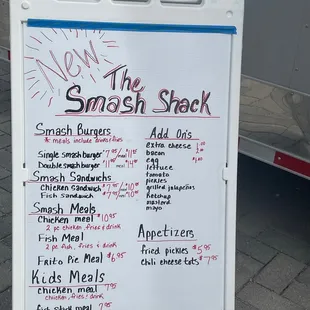 New
The
Smash Shack
Smash Burgers
* meals include drinks/fries
Single smash burger $7.95/meal $11
Double smash burger $11.95/meal $14
Smash Sandwichs
Chicken Sandwich $7.95
Fish Sandwich $7.95
Smash Meals
Chicken meal $10.95
2 pc chicken, fries & drink
Fish Meal
2 pc fish, fries & drink
Frito Pie Meal $6.95
Kids Meals
chicken meal 7.95
chicken, fries & drink
Add On's
extra cheese
bacon
egg
lettuce
tomato
pickles
grilled jalapeños
ketchup
mustard
mayo
Appetizers
fried pickles $5.95
chili cheese tots $7.95